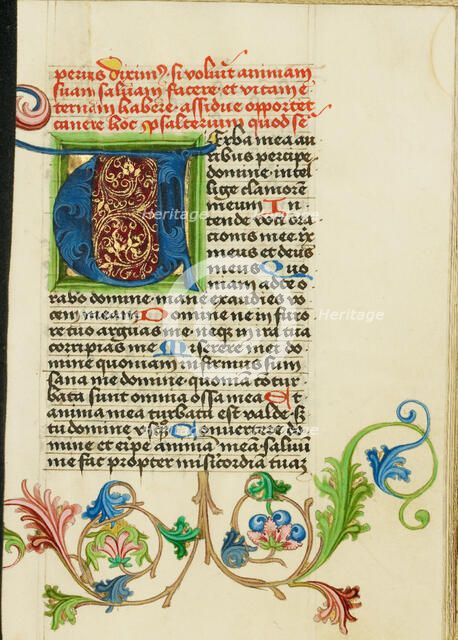 perius diximꝰ. si voluit animam
suam saluam facere et vitam e
ternam habere assidue opportet
canere hoc psalterium quod se
Verba mea au
ribus percipe
domine intel
lige clamorē
meum In
tende voci ora
cionis mee rex
meus et deus
meus Quo
niam ad te o
rabo domine mane exaudies vo
cem meam Domine ne in furo
re tuo arguas me neqꝫ in ira tua
corripias me Miserere mei do
mine quoniam infirmus sum
sana me domine quonia cōtur
batu sunt omnia ossa mea Et
anima mea turbatu est valde sꝫ
tu domine vsqꝫ Conuertere do
mine et eripe animā meā saluū
me fac propter misicordiā tuaꝫ
Heritage
Heritage
Heritage
Heritage